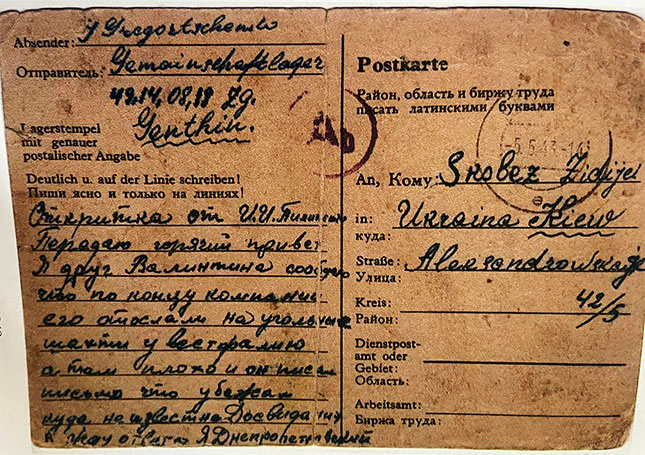 Absender:
Отправитель: Gemainschaftlager
Genthin.
Lagerstempel
mit genauer
postalischer Angabe
Deutlich u. auf der Linie schreiben!
Пиши ясно и только на линиях!
Откритка от И.И.
Передаю горячий привет
Я друг Валинтина
что по концу компание
его отослали на угольные
шахти у вестфалию
а там плохо и он писал
письмо что убежал
куда не известна Досвидания
Жду ответ Я Днепропетровский
Postkarte
Район, область и биржу труда
писать латинскими буквами
Ab
An, Кому: Skobez
in: Ukraina Kiew
куда:
Straße: Alexsandrowskaja
Улица:
Kreis: 42/5
Район:
Dienstpost-
amt oder
Gebiet:
Область:
Arbeitsamt:
Биржа труда: